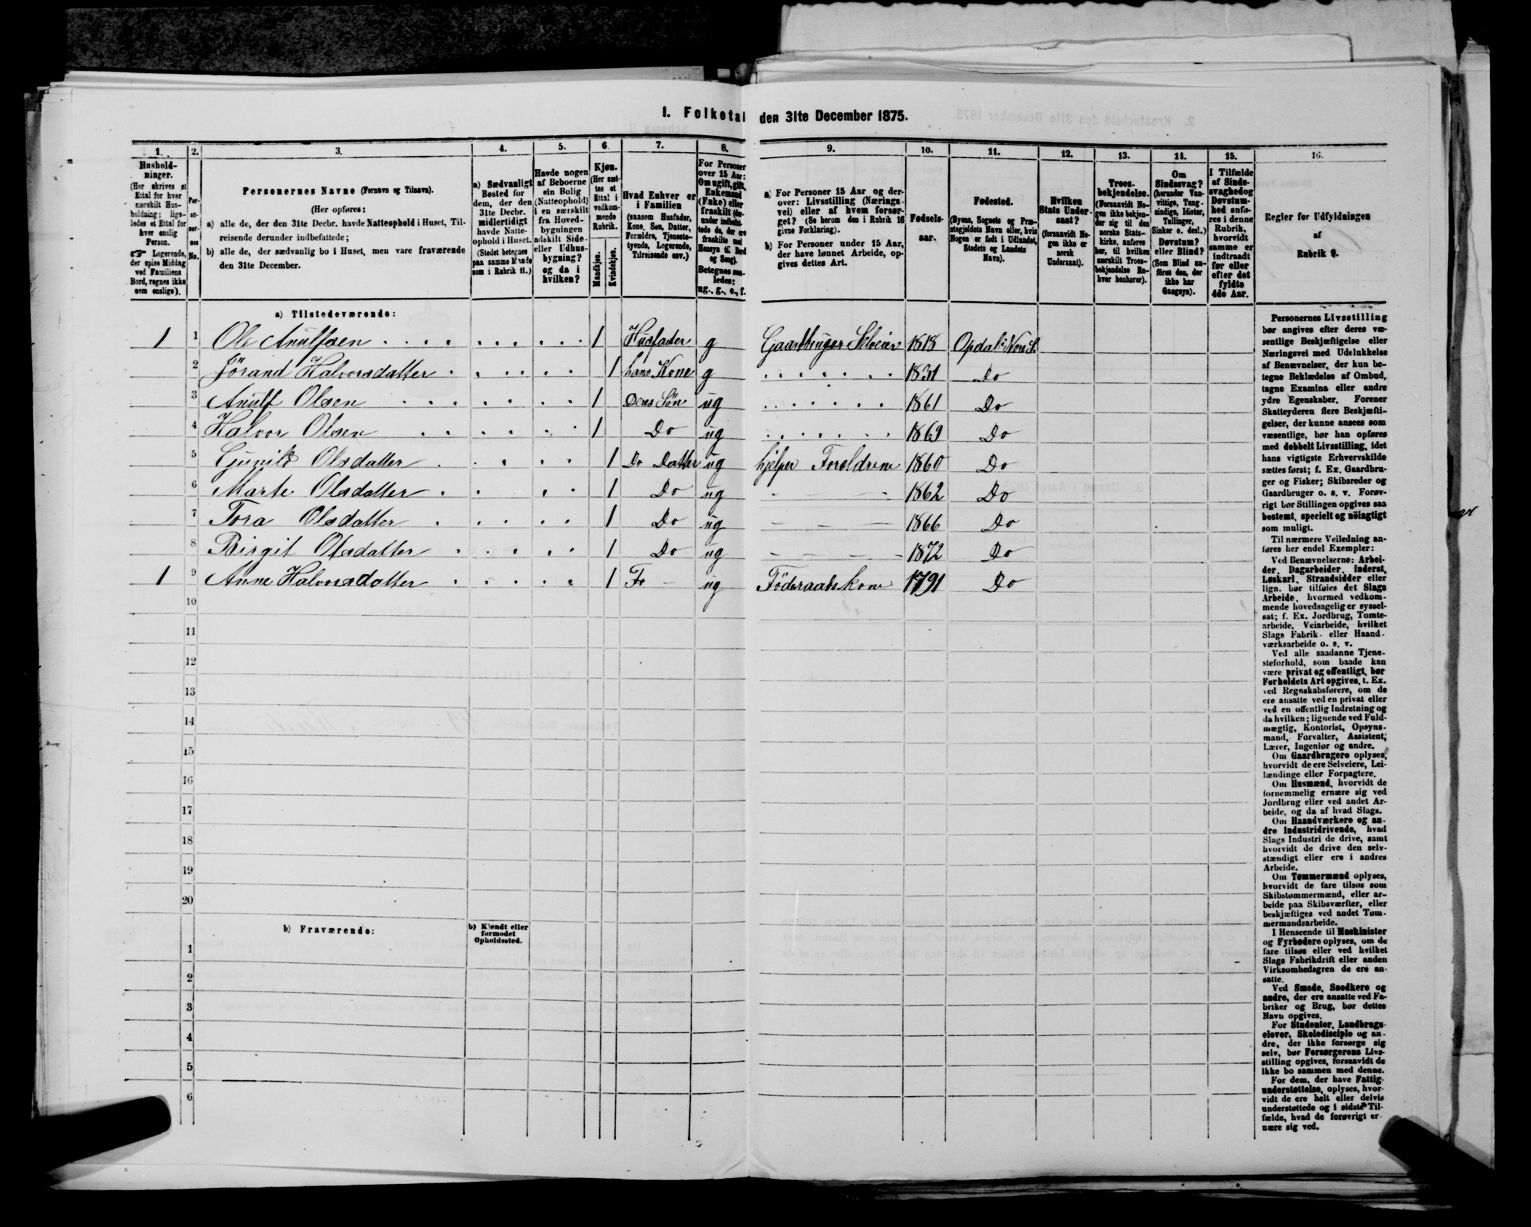 I. Folketal den 31te December 1875.
1. 2. 3. 4. 5. 6. 7. 8. 9. 10. 11. 12. 13. 14. 15. 16.
Husholdninger.
(Her skrives et Ettal for hver særskilt Husholdning; ligeledes et Ettal for hver enslig Person.
Logerende, der spise Middag ved Familiens Bord, regnes ikke som enslige).
Personernes No.
Personernes Navne (Fornavn og Tilnavn).
(Her opføres:
a) alle de, der den 31te Decbr. havde Natteophold i Huset, Tilreisende derunder indbefattede;
b) alle de, der sædvanlig bo i Huset, men vare fraværende den 31te December.
a) Sædvanligt Bosted for dem, der den 31te Decbr. midlertidigt havde Natteophold i Huset.
(Stedet betegnes paa samme Maade som i Rubrik 11.)
Havde nogen af Beboerne sin Bolig (Natteophold) i en særskilt fra Hovedbygningen adskilt Side- eller Udhusbygning? og da i hvilken?
Kjøn.
(Her sættes et Ettal i vedkommende Rubrik.
Mandkjøn. Kvindekjøn.
Hvad Enhver er i Familien
(saasom Husfader, Kone, Søn, Datter, Forældre, Tjenestetyende, Logerende, Tilreisende osv.)
For Personer over 15 Aar: Om ugift, gift, Enkemand (Enke) eller fraskilt
Betegnes saaledes: ug., g., e., f.
a) For Personer 15 Aar og derover: Livsstilling (Næringsvei) eller af hvem forsørget? (Se herom den i Rubrik 16 givne Forklaring).
b) For Personer under 15 Aar, der have lønnet Arbeide, opgives dettes Art.
Fødselsaar.
Fødested.
(Byens, Sognets og Præstegjeldets Navn eller, hvis Nogen er født i Udlandet, Stedets og Landets Navn).
Hvilken Stats Undersaat?
(forsaavidt Nogen ikke er norsk Undersaat).
Troesbekjendelse.
(Forsaavidt Nogen ikke bekjender sig til den norske Statskirke, anføres her, til hvilken særskilt Troesbekjendelse Enhver henhører).
Om Sindssvag?
(herunder Vanvittige, Tungsindige, Idioter, Tullinger, Sinker o. desl.)
Døvstum? eller Blind?
(Som Blind anføres den, der ikke har Gangsyn).
I Tilfælde af Sindssvaghed og Døvstumhed anføres i denne Rubrik, hvorvidt samme er indtraadt før eller efter det fyldte 4de Aar.
Regler for Udfyldningen af Rubrik 9.
a) Tilstedeværende:
1 1 Ole Anulfsen 1 Husfader g Gaardbruger Selveier 1818 Opdal: Num S.
2 Jørand Halvorsdatter 1 hans Kone g 1831 Do
3 Anulf Olsen 1 Deres Søn ug 1861 Do
4 Halvor Olsen 1 Do ug 1869 Do
5 Gunild Olsdatter 1 Do Datter ug hjelper Forældrene 1860 Do
6 Marte Olsdatter 1 Do ug 1862 Do
7 Tora Olsdatter 1 Do ug 1866 Do
8 Birgit Olsdatter 1 Do ug 1872 Do
1 9 Anne Halvorsdatter 1 Fo ug Föderaadskone 1791 Do
10
11
12
13
14
15
16
17
18
19
20
b) Fraværende:
b) Kjendt eller formodet Opholdssted.
1
2
3
4
5
6
Personernes Livsstilling
bør angives efter deres væ-
sentlige Beskjæftigelse eller
Næringsvei med Udelukkelse
af Benævnelser, der kun be-
tegne Beklædelse af Ombud,
tagne Examina eller andre
ydre Egenskaber. Forener
Skatteyderen flere Beskjæfti-
gelser, der kunne ansees som
væsentlige, bør han opføres
med dobbelt Livsstilling, idet
hans vigtigste Erhvervskilde
sættes først; f. Ex. Gaardbru-
ger og Fisker; Skibsreder og
Gaardbruger o. s. v. Forøv-
rigt bør Stillingen opgives saa
bestemt, specielt og nöiagtigt
som muligt.
Til nærmere Veiledning an-
føres her endel Exempler:
Ved Benævnelserne: Arbei-
der, Dagarbeider, Inderst,
Løskarl, Strandsidder eller
lign. bør tilføies det Slags
Arbeide, hvormed vedkom-
mende hovedsagelig er syssel-
sat; f. Ex. Jordbrug, Tomte-
arbeide, Veiarbeide, hvilket
Slags Fabrik- eller Haand-
værksarbeide o. s. v.
Ved alle saadanne Tjene-
steforhold, som baade kan
være privat og offentligt, bør
Forholdets Art opgives, t. Ex.
ved Regnskabsførere, om de
ere ansatte ved en privat eller
ved en offentlig Indretning og
da hvilken; lignende ved Fuld-
mægtig, Kontorist, Opsyns-
mand, Forvalter, Assistent,
Lærer, Ingeniør og andre.
Om Gaardbrugere oplyses,
hvorvidt de ere Selveiere, Lei-
lændinge eller Forpagtere.
Om Husmænd, hvorvidt de
fornemmelig ernære sig ved
Jordbrug eller ved andet Ar-
beide, og da af hvad Slags.
Om Haandværkere og an-
dre Industridrivende, hvad
Slags Industri de drive, samt
hvorvidt de drive den selv-
stændigt eller ere i andres
Arbeide.
Om Tømmermænd oplyses,
hvorvidt de fare tilsøs som
Skibstømmermænd, eller ar-
beide paa Skibsværfter, eller
beskjæftiges ved andet Tøm-
mermandsarbeide.
I Henseende til Maskinister
og Fyrbødere oplyses, om de
fare tilsøs eller ved hvilket
Slags Fabrikdrift eller anden
Virksomhedsgren de ere an-
satte.
Ved Smede, Snedkere og
andre, der ere ansatte ved Fa-
briker og Brug, bør dettes
Navn opgives.
For Studenter, Landbrugs-
elever, Skoledisciple og an-
dre, der ikke forsørge sig
selv, bør Forsørgerens Livs-
stilling opgives, forsaavidt de
ikke bo sammen med denne.
For dem, der have Fattig-
understøttelse, oplyses, hvor-
vidt de ere helt eller delvis
understøttede og i sidste Til-
fælde, hvad de forøvrigt er-
nære sig ved.